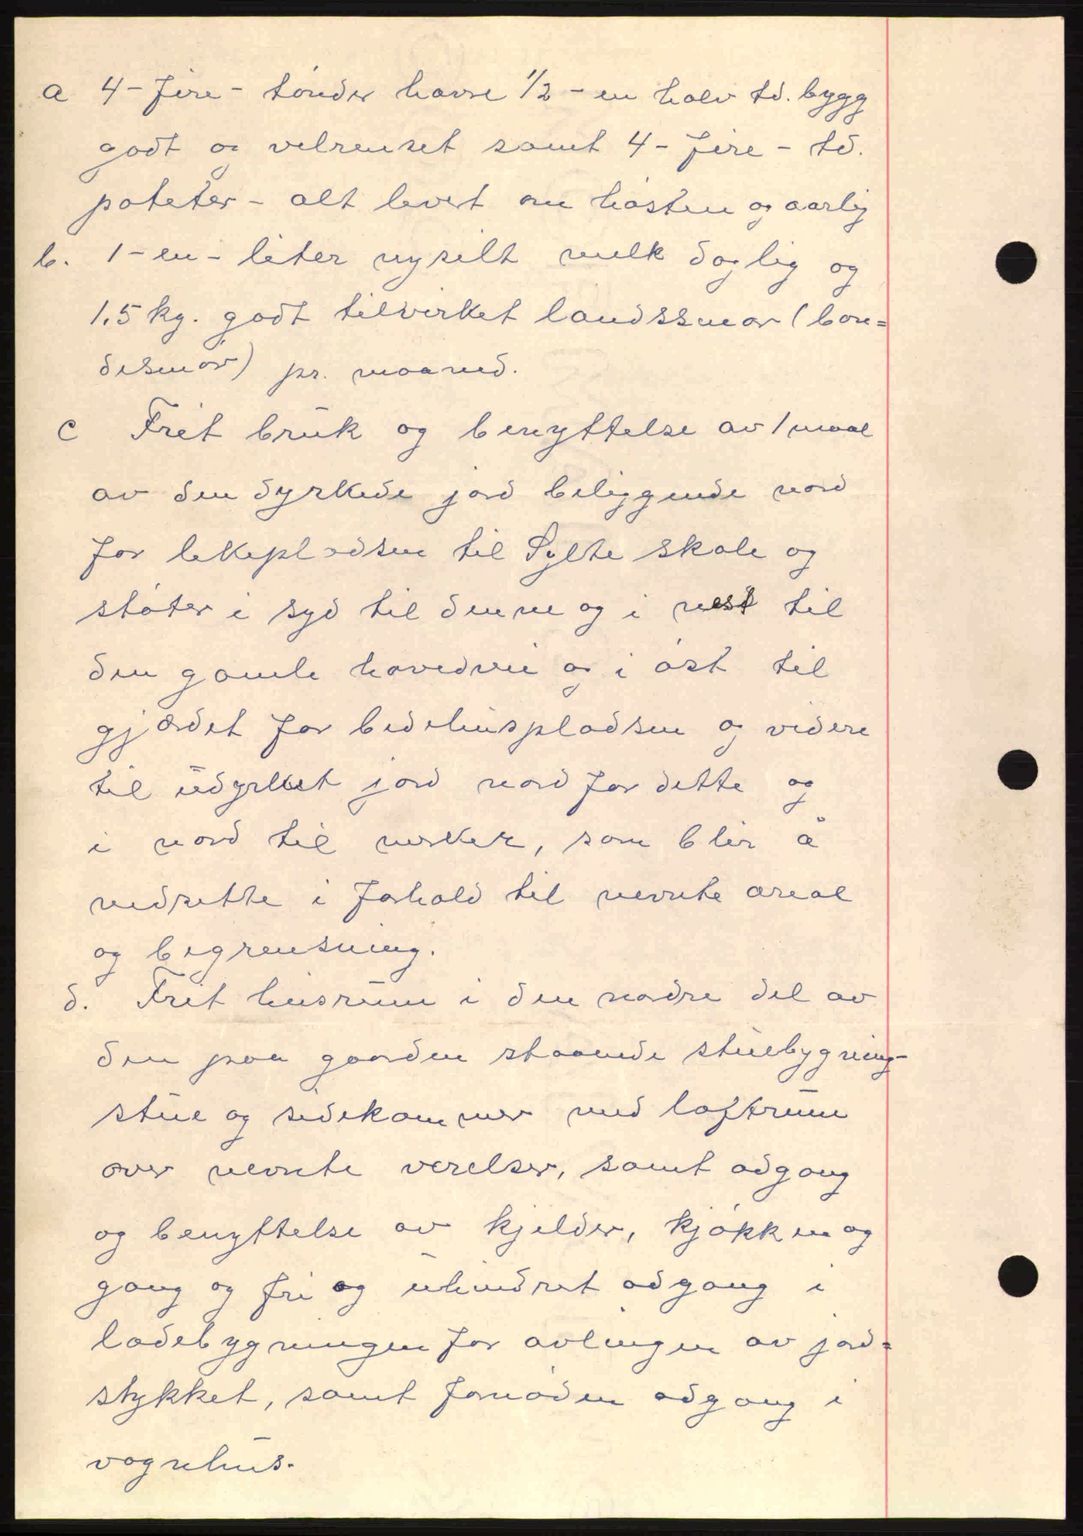 a 4 - fire - tönder havre 1/2 - en halv td. bygg
godt og velrenset samt 4 - fire - td.
poteter - alt levert om hösten og aarlig
b. 1 - en - liter nysilt melk daglig og
1.5 kg. godt tilvirket landssmør (bon=
desmör) pr. maaned.
c Frit bruk og benyttelse av 1 maal
av den dyrkede jord beliggende nord
for lekepladsen til Sylte skole og
stöter i syd til denne og i vest til
den gamle hovedvei og i öst til
gjærdet for bedehuspladsen og videre
til udyrket jord nord for dette og
i nord til merker, som blir å
nedsette i forhold til nevnte areal
og begrensning.
d. Frit husrum i den nordre del av
den paa gaarden staaende stuebygning -
stue og sidekammer med loftrum
over nevnte verelser, samt adgang
og benyttelse av kjelder, kjökken og
gang og fri og uhindret adgang i
ladebygningen for avlingen av jord=
stykket, samt fornöden adgang i
vognhus.